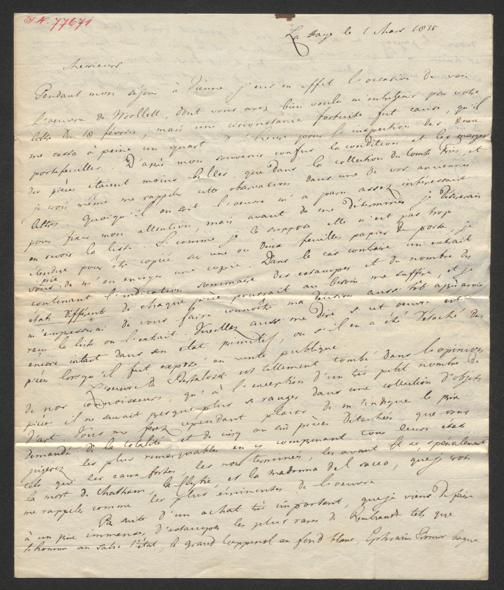 I. N. 77671
La Haye le 1 Mars 1835
Messieurs
Pendant mon séjour à Vienne j'eus en effet l'occasion de voir
l'oeuvre de Woollett, dont vous avez bien voulu m'entretenir par votre
lettre du 18 février, mais une circonstance fortuite fut cause, qu'il
me resta à peine un quart d'heure pour l'inspection des deux
portefeuilles. D'après mon souvenir confus la condition et les marges
des pièces étaient moins belles que dans la collection du Comte Fries et
je crois même me rappeler cette observation dans une de vos anciennes
lettres. Quoiqu'il en soit l'oeuvre m'a paru assez intéressant
pour fixer mon attention, mais avant de me déterminer je désirais
en avoir la liste. Si comme je le suppose elle n'est pas trop
étendue pour être copiée sur une ou deux feuilles papier de poste, je
vous de m'en envoyer une copie. Dans le cas contraire un extrait
contenant l'indication sommaire des estampes et de nombre des
états différents de chaque pièce pourrait au besoin me suffire, et je
m'empresserai de vous faire connaître ma aussi tôt après avoir
reçu la liste ou l'extrait. Veuillez aussi me dire si cet oeuvre est
encore intact dans son état primitif, ou s'il en a été détaché des
pièces lorsqu'il fut exposé en vente publique.
L'oeuvre de est tellement tombé dans l'opinion
de nos connaisseurs, qu'à l'exception d'un très petit nombre de
pièces il ne saurait presque plus se ranger dans une collection d'objets
d'art. Vous me ferez cependant plaisir de m'indiquer le prix
demandé de la totalité et de cinq ou six pièces détachées que vous
jugerez les plus remarquables en y comprenant tous leurs états
tels que les eaux fortes, les non terminés, les avant et spécialement
la mort de Chatham, le et la madonna del sacco, que je
me rappelle comme les plus éminentes de l'oeuvre.
Par suite d'un achat très important, que je viens de faire
à un prix immense, d'estampes les plus rares de Rembrandt tels que
le grand Coppenol en fond blanc, Ephraim Bonus bague